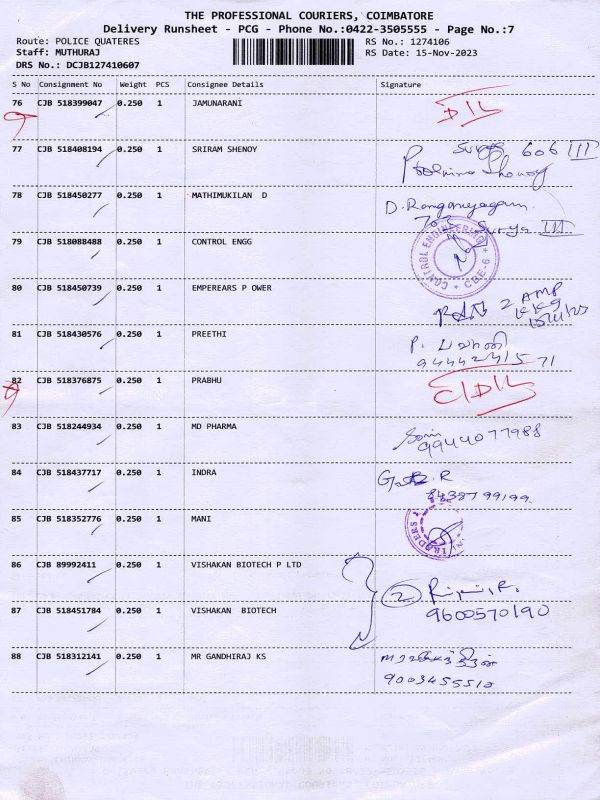 THE PROFESSIONAL COURIERS, COIMBATORE
Delivery Runsheet - PCG - Phone No.:0422-3505555 - Page No.:7
Route: POLICE QUATERES RS No.: 1274106
Staff: MUTHURAJ RS Date: 15-Nov-2023
DRS No.: DCJB127410607
S No Consignment No Weight PCS Consignee Details Signature
76 CJB 518399047 0.250 1 JAMUNARANI
77 CJB 518408194 0.250 1 SRIRAM SHENOY 606 III
Shenoy
78 CJB 518450277 0.250 1 MATHIMUKILAN D D. Ranganayagam
Surya III
79 CJB 518088488 0.250 1 CONTROL ENGG CONTROL ENGINEERING CBE-6
80 CJB 518450739 0.250 1 EMPEREARS P OWER
81 CJB 518430576 0.250 1 PREETHI P.
9444241571
82 CJB 518376875 0.250 1 PRABHU
83 CJB 518244934 0.250 1 MD PHARMA
9944077988
84 CJB 518437717 0.250 1 INDRA
8438799199
85 CJB 518352776 0.250 1 MANI TRADERS
86 CJB 89992411 0.250 1 VISHAKAN BIOTECH P LTD 2
87 CJB 518451784 0.250 1 VISHAKAN BIOTECH 9600570190
88 CJB 518312141 0.250 1 MR GANDHIRAJ KS
9003455510